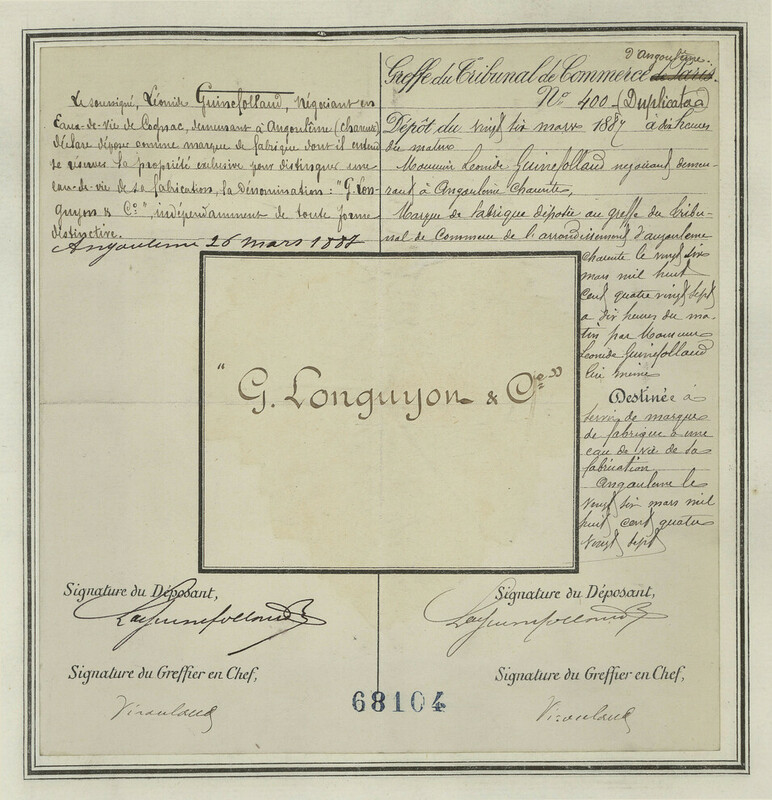 Le soussigné, Léonide Guinefolland, Négociant en
Eaux-de-Vie de Cognac, demeurant à Angoulême (Charente)
déclare dépose comme marque de fabrique dont il entend
se réserver la propriété exclusive pour distinguer une
eau-de-vie de sa fabrication, la dénomination: "G. Lon-
guyon & Cº", indépendamment de toute forme
distinctive.
Angouleme 26 mars 1887
d'Angoulême
Greffe du Tribunal de Commerce de Paris.
Nº 400 (Duplicata)
Dépôt du vingt six mars 1887 à dix heures
du matin
Monsieur Leonide Guinefolland négociant demeu-
rant à Angouleme Charente,
Marque de fabrique déposée au greffe du tribu-
nal de Commerce de l'arrondissement d'angouleme
Charente le vingt six
mars mil huit
cent quatre vingt sept
a dix heures du ma-
tin par Monsieur
Leonide Guinefolland
lui meme
Destinée à
servir de marque
de fabrique a une
eau de vie de sa
fabrication
Angouleme le
vingt six mars mil
huit cent quatre
vingt sept
"G. Longuyon & Cie"
Signature du Déposant,
Signature du Déposant,
Signature du Greffier en Chef,
Signature du Greffier en Chef,
68104